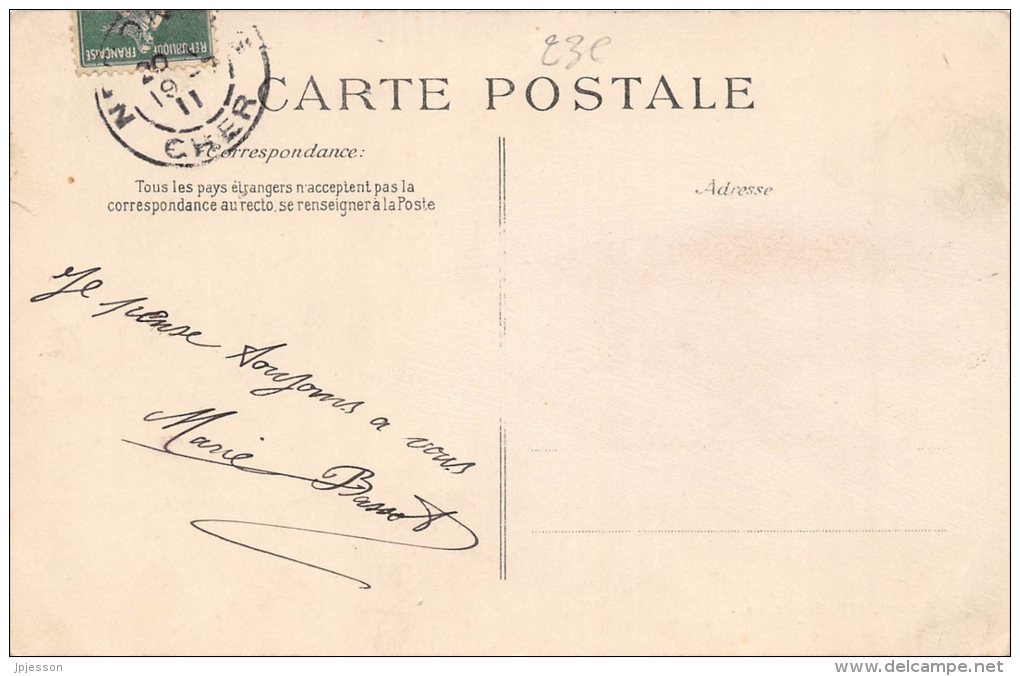 RÉPUBLIQUE FRANÇAISE
19
11
CHER
23€
CARTE POSTALE
Correspondance:
Tous les pays étrangers n'acceptent pas la
correspondance au recto, se renseigner à la Poste
Adresse
Je pense toujours a vous
Marie Bassot
jpjesson
www.delcampe.net